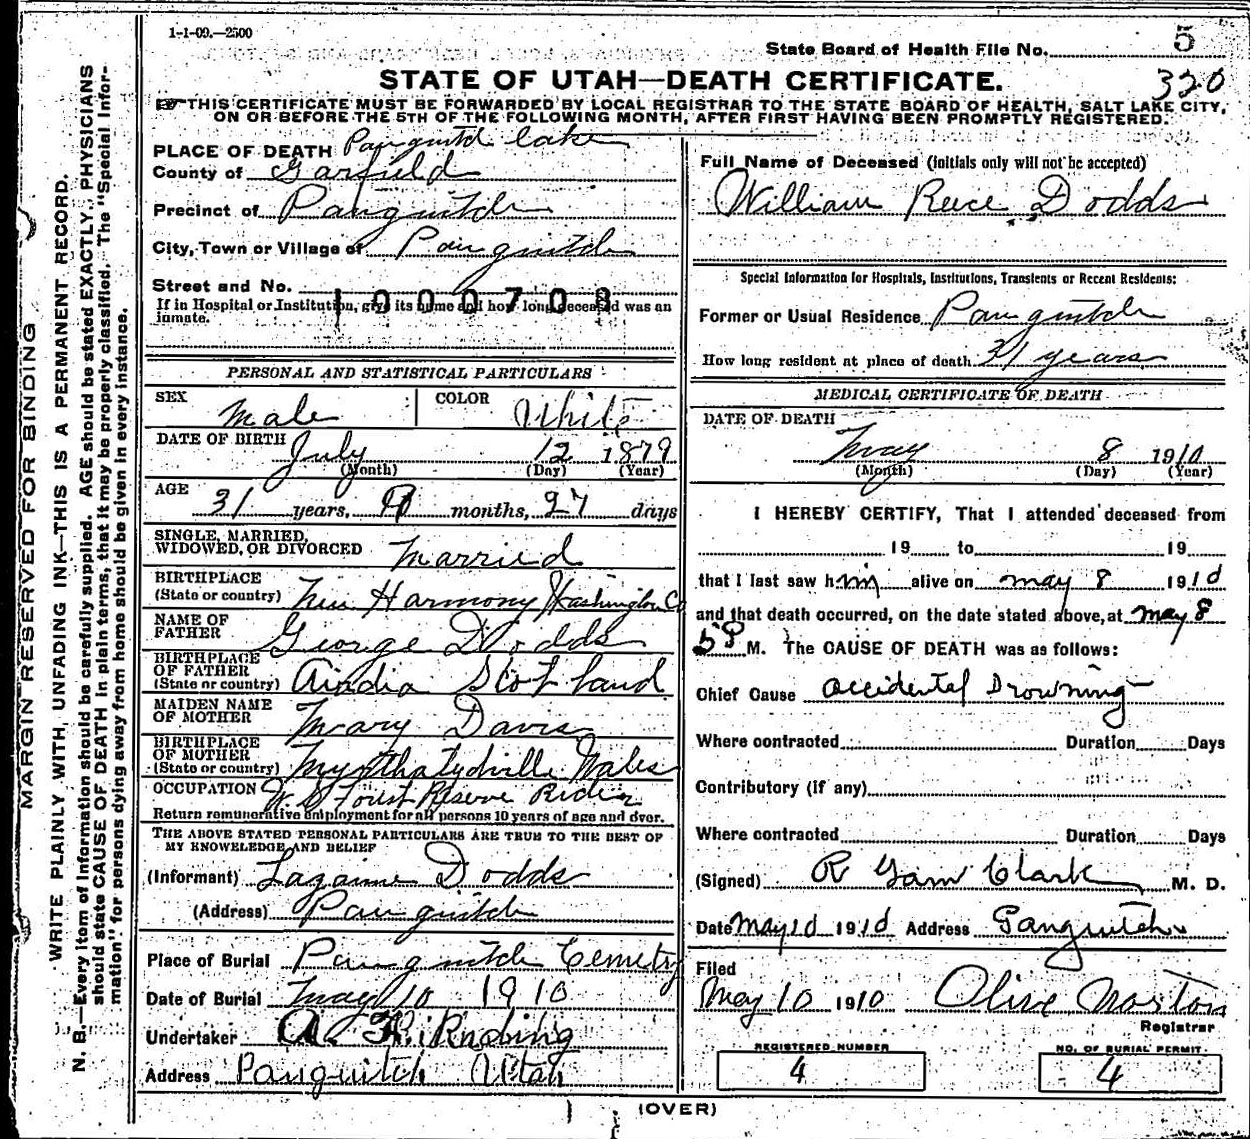 1-1-09.—2500
State Board of Health File No. 5
320
STATE OF UTAH—DEATH CERTIFICATE.
THIS CERTIFICATE MUST BE FORWARDED BY LOCAL REGISTRAR TO THE STATE BOARD OF HEALTH, SALT LAKE CITY,
ON OR BEFORE THE 5TH OF THE FOLLOWING MONTH, AFTER FIRST HAVING BEEN PROMPTLY REGISTERED.
MARGIN RESERVED FOR BINDING
WRITE PLAINLY WITH UNFADING INK—THIS IS A PERMANENT RECORD.
N. B.—Every item of Information should be carefully supplied. AGE should be stated EXACTLY. PHYSICIANS
should state CAUSE OF DEATH in plain terms, that it may be properly classified. The "Special Infor-
mation" for persons dying away from home should be given in every instance.
PLACE OF DEATH Panguitch lake
County of Garfield
Precinct of Panguitch
City, Town or Village of Panguitch
Street and No.
1000708
If in Hospital or Institution, give its name and how long deceased was an
inmate.
PERSONAL AND STATISTICAL PARTICULARS
SEX Male COLOR White
DATE OF BIRTH July 12 1879
(Month) (Day) (Year)
AGE 31 years, months, 27 days
SINGLE, MARRIED,
WIDOWED, OR DIVORCED Married
BIRTHPLACE
(State or country) New Harmony Washington Co
NAME OF
FATHER George Dodds
BIRTHPLACE
OF FATHER
(State or country) Scotland
MAIDEN NAME
OF MOTHER Mary Davis
BIRTHPLACE
OF MOTHER
(State or country) Wales
OCCUPATION U.S Forest Reserve Rider
Return remunerative employment for all persons 10 years of age and over.
THE ABOVE STATED PERSONAL PARTICULARS ARE TRUE TO THE BEST OF
MY KNOWLEDGE AND BELIEF
(Informant) Dodds
(Address) Panguitch
Place of Burial Panguitch Cemetry
Date of Burial May 10 1910
Undertaker A.
Address Panguitch Utah
Full Name of Deceased (initials only will not be accepted)
William Reece Dodds
Special Information for Hospitals, Institutions, Transients or Recent Residents:
Former or Usual Residence Panguitch
How long resident at place of death 31 years
MEDICAL CERTIFICATE OF DEATH
DATE OF DEATH May 8 1910
(Month) (Day) (Year)
I HEREBY CERTIFY, That I attended deceased from
19 to 19
that I last saw him alive on May 8 1910
and that death occurred, on the date stated above, at May 8
5 P M. The CAUSE OF DEATH was as follows:
Chief Cause Accidental Drowning
Where contracted Duration Days
Contributory (if any)
Where contracted Duration Days
(Signed) R Garn Clark M. D.
Date May 10 1910 Address Panguitch
Filed
May 10 1910 Olive Norton
Registrar
REGISTERED NUMBER
4
NO. OF BURIAL PERMIT
4
(OVER)